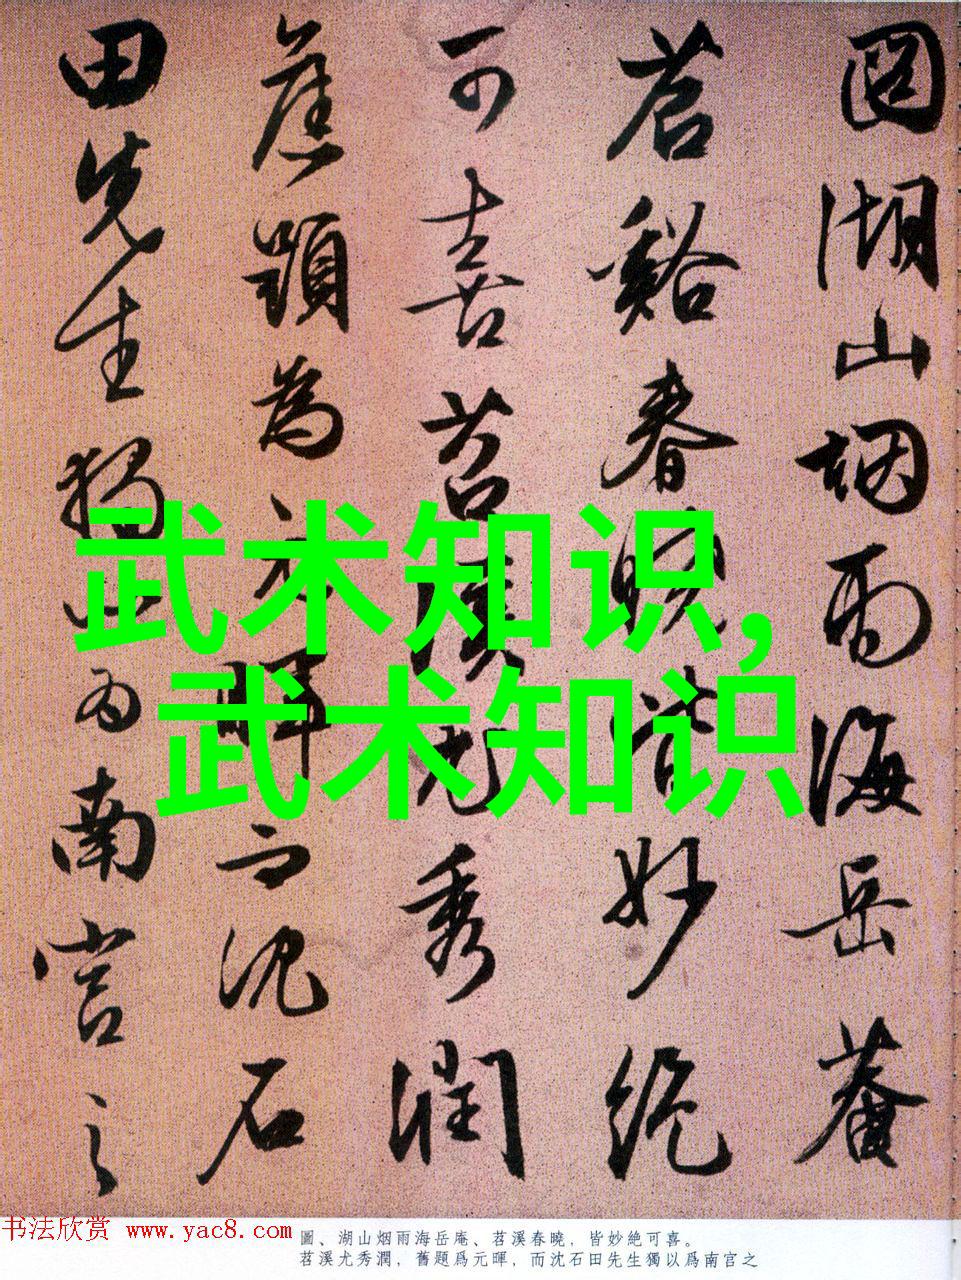 圖湖山烟雨海岳菴
苕谿春曉皆妙絶
可喜苕溪尤秀潤
舊題為元暉而沈石
田先生獨以為南宮之
武术知识,
武术知识
书法欣赏 www.yac8.com
圖、湖山烟雨海岳庵、苕溪春曉，皆妙絶可喜。
苕溪尤秀潤，舊題爲元暉，而沈石田先生獨以爲南宫之